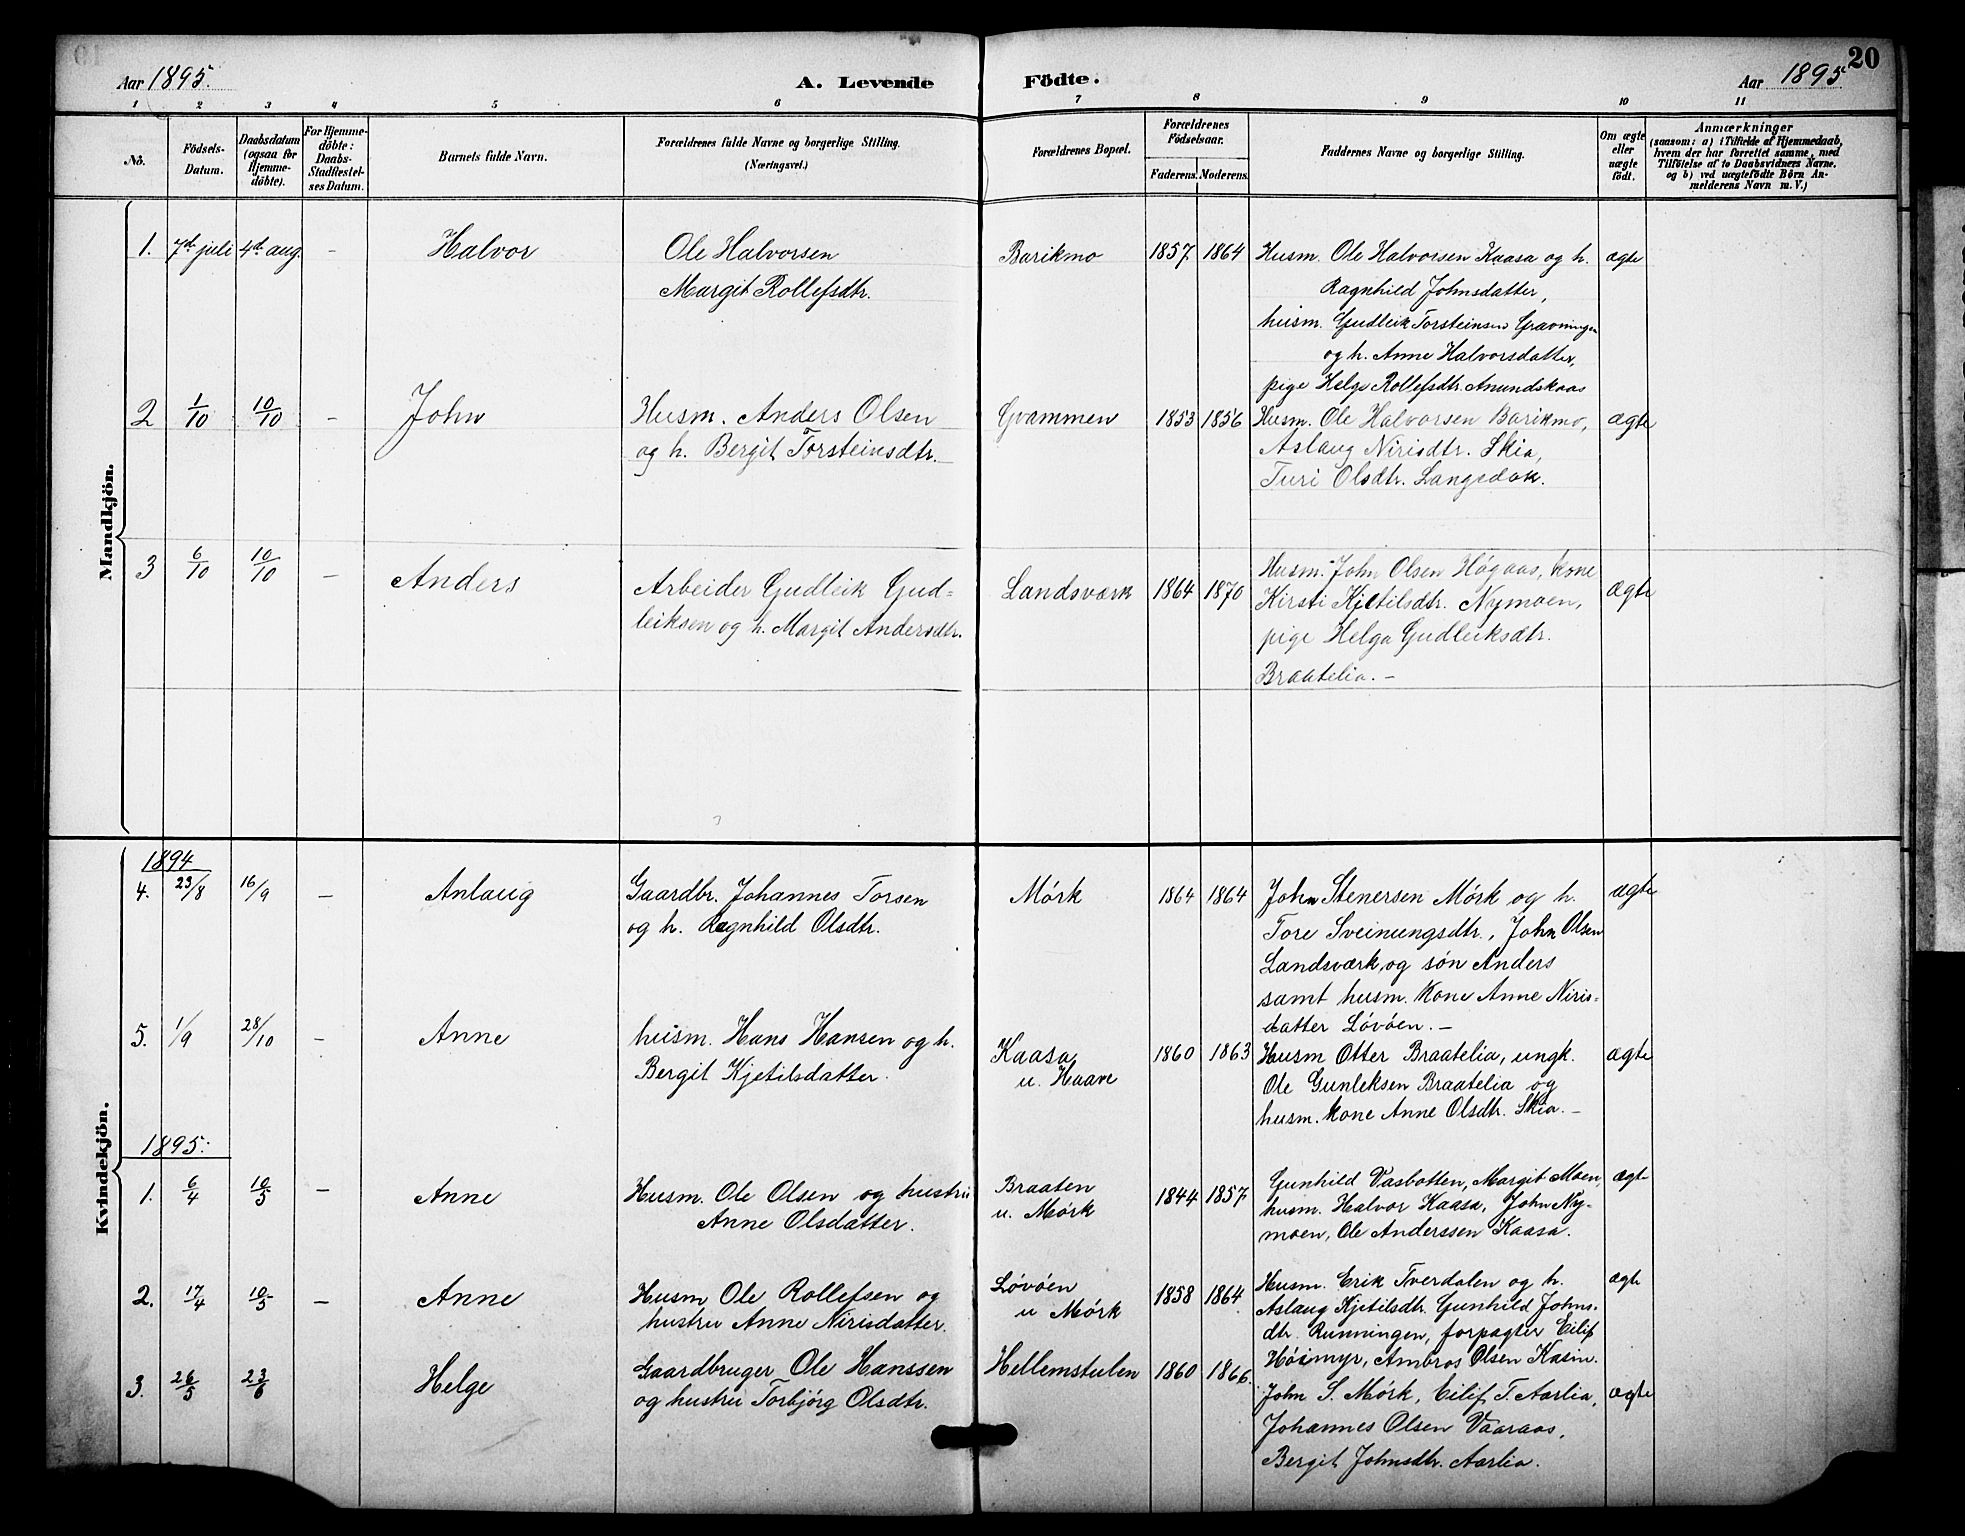 20
Aar 1895.
A. Levende Födte.
Aar 1895.
1 2 3 4 5 6 7 8 9 10 11
No.
Födsels-
Datum.
Daabsdatum
(ogsaa for
Hjemme-
döbte).
For Hjemme-
döbte:
Daabs-
Stadfæstel-
ses Datum.
Barnets fulde Navn.
Forældrenes fulde Navne og borgerlige Stilling.
(Næringsvei.)
Forældrenes Bopæl.
Forældrenes
Födselsaar.
Faderens. Moderens.
Faddernes Navne og borgerlige Stilling.
Om ægte
eller
uægte
födt.
Anmærkninger
(saasom: a) i Tilfælde af Hjemmedaab,
hvem der har forrettet samme, med
Tilföielse af to Daabsvidners Navne,
og b) ved uægtefödte Börn An-
melderens Navn m. V.)
Mandkjön.
1. 7d juli 4d aug. - Halvor
Ole Halvorsen
Margit Rollefsdtr.
Barikmo 1857. 1864
Husm. Ole Halvorsen Kaasa og h.
Ragnhild Johnsdatter,
husm. Gudleik Torsteinsen Gravningen
og h. Anne Halvorsdatter,
pige Helge Rollefsdtr. Anundskaas
ægte
2 1/10 10/10 - John
Husm. Anders Olsen
og h. Bergit Torsteinsdtr.
Gvammen 1853 1856
Husm. Ole Halvorsen Barikmo,
Aslaug Nirisdtr. Skia,
Turi Olsdtr. Langsdok.
ægte
3 6/10 10/10 - Anders
Arbeider Gudleik Gud=
leiksen og h. Margit Andersdtr.
Landsværk 1864 1870
Husm. John Olsen Högaas, kone
Kirsti Kjetilsdtr. Nymoen,
pige Helga Gudleiksdtr.
Braatelia. -
ægte
Kvindekjön.
1894
4. 23/8 16/9 - Anlaug
Gaardbr. Johannes Torsen
og h. Ragnhild Olsdtr.
Mórk 1864 1864
John Stenersen Mórk og h.
Tore Sveinungsdtr., John Olsen
Landsværk, og són Anders
samt husm. kone Anne Niris=
datter Lóvóen. -
ægte
5. 1/9 28/10 - Anne
husm. Hans Hansen og h.
Bergit Kjetilsdatter.
Kaasa
u. Haave
1860 1863
Husm Otter Braatelia, ungk.
Ole Gunleksen Braatelia og
husm. kone Anne Olsdtr. Skia. -
ægte
1895:
1. 6/4 10/5 - Anne
Husm. Ole Olsen og hustru
Anne Olsdatter.
Braaten
u. Mórk
1844 1857.
Gunhild Vasbotten, Margit Moen,
husm. Halvor Kaasa, John Ny-
moen, Ole Anderssen Kaasa.
ægte
2. 17/4 10/5 - Anne
Husm Ole Rollefsen og
hustru Anne Nirisdatter.
Lóvóen
u Mórk
1858 1864.
Husm. Erik Tverdalen og h.
Aslaug Kjetilsdtr. Gunhild Johns.
dtr. Runningen, forpagter Eilif
Hóimyr, Ambros Olsen Kasin.
ægte
3. 26/5 23/6 Helge
Gaardbruger Ole Hanssen
og hustru Torbjórg Olsdtr.
Hellemstulen 1860 1866.
John S. Mórk, Eilif T. Aarlia,
Johannes Olsen Vaaraas,
Bergit Johnsdtr. Aarlia.
ægte